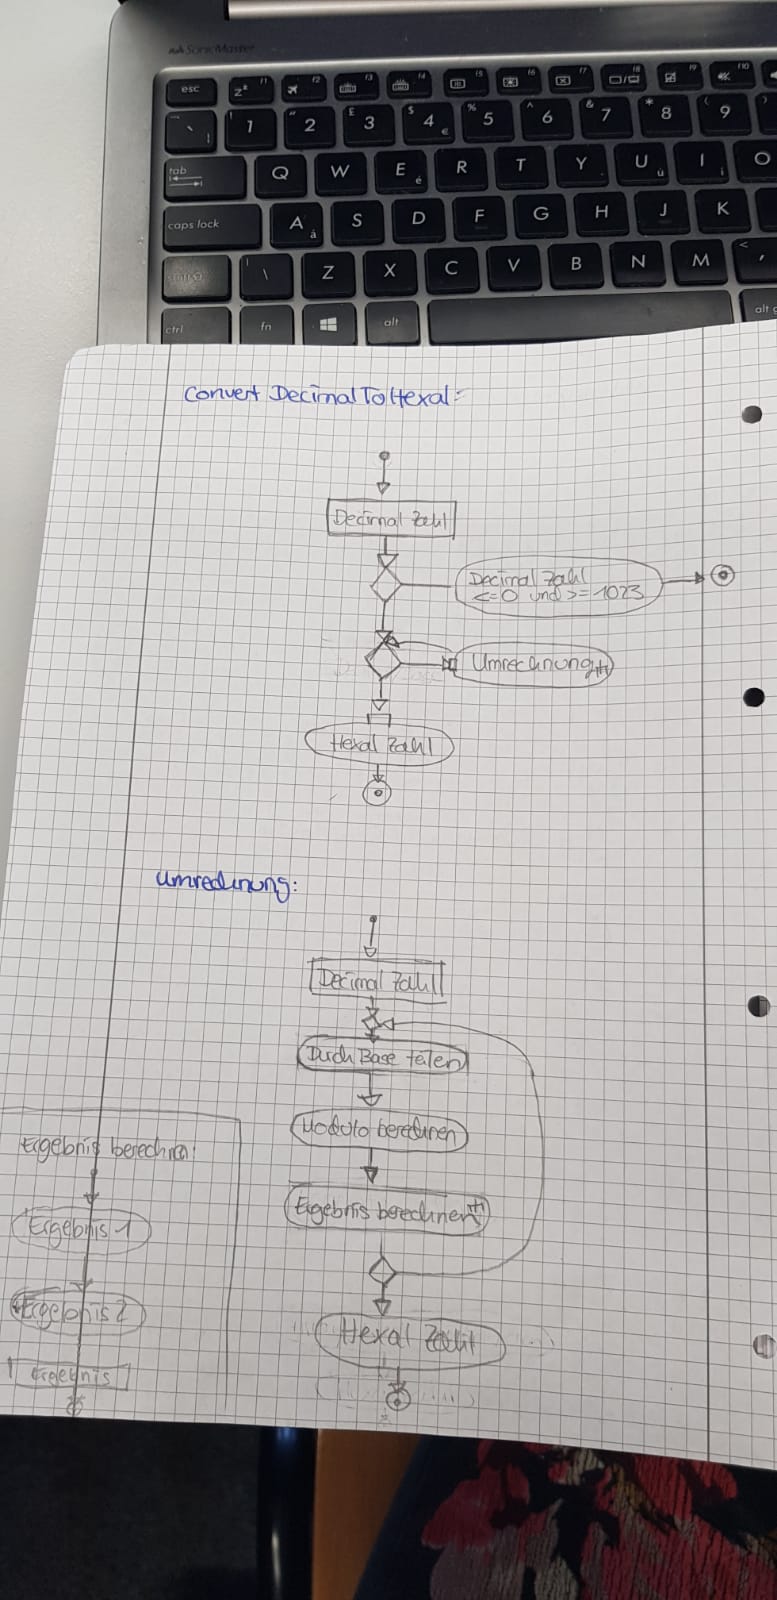 SonicMaster
esc z² f1 f2 f3 f4 f5 f6 f7 f8 f9 f10
1 2 £ 3 $ 4 € % 5 ^ 6 & 7 * 8 ( 9 )
tab Q W E é R T Y U ú I í O
caps lock A á S D F G H J K
\ Z X C V B N M < ,
ctrl fn alt alt g
Convert DecimalToHexal:
Decimal Zahl
Decimal Zahl
<=0 und >=1023
Umrechnung
Hexal Zahl
Umrechnung:
Decimal Zahl
Durch Base teilen
Modulo berechnen
Ergebnis berechnen
Hexal Zahl
Ergebnis berechnen:
Ergebnis 1
Ergebnis 2
Ergebnis